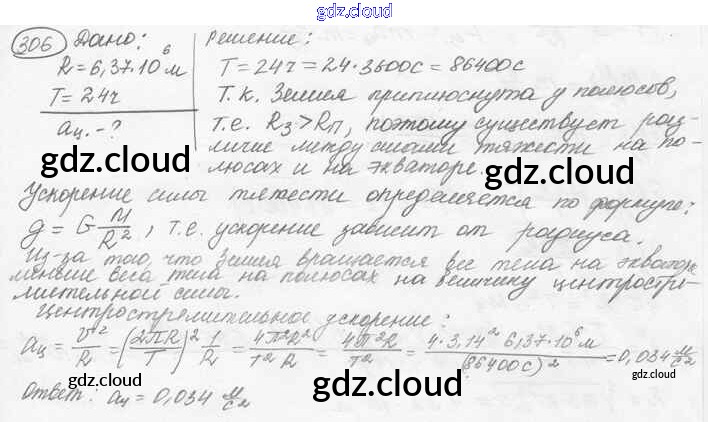 gdz.cloud
306 Дано: Решение:
R = 6,37·10⁶ м T = 24ч = 24·3600с = 86400с
T = 24ч Т.к. Земля приплюснута у полюсов,
aц. - ? т.е. Rз > Rп, поэтому существует раз-
личие между силами тяжести на по-
gdz.cloud люсах и на экваторе. gdz.cloud
Ускорение силы тяжести определяется по формуле:
g = G M/R², т.е. ускорение зависит от радиуса.
Из-за того, что Земля вращается все тела на экваторе
меньше веса тела на полюсах на величину центростре-
мительной силы.
gdz.cloud gdz.cloud
Центростремительное ускорение:
aц = v²/R = (2πR/T)² 1/R = 4π²R²/T²R = 4π²R/T² = 4·3,14²·6,37·10⁶м/(86400с)² = 0,034 м/с²
gdz.cloud gdz.cloud
Ответ: aц = 0,034 м/с²
gdz.cloud